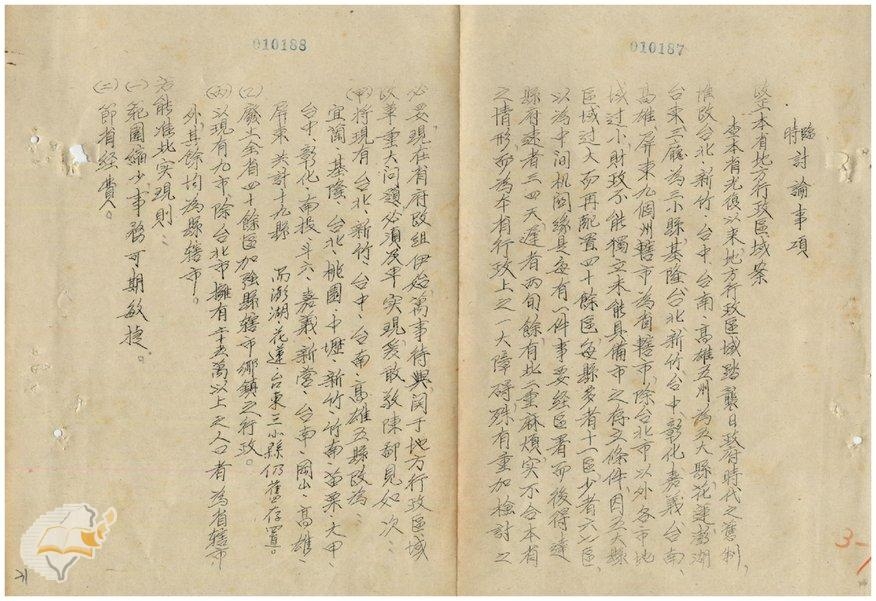 010187
臨時討論事項
整本省地方行政區域案
查本省光復以來地方行政區域踏襲日政府時代之舊制,
惟改台北、新竹、台中、台南、高雄五州為五大縣,花蓮澎湖
台東三廳為三小縣,基隆、台北、新竹、台中、彰化、嘉義、台南、
高雄、屏東九個州轄市為省轄市,除台北市以外各市地
域过小財政不能獨立未能具備市之存立條件,因五大縣
區域过大而再配置四十餘區,每縣多者十一區少者六七區,
以為中间机関緣具,每有一件事要經區署而後得達
縣府,速者三四天遲者兩旬餘,有此二重麻煩,实不合本省
之情形,而為本省行政上之一大障碍,殊有重加檢討之
3-1
010188
必要,現在省府政組伊始,萬事待興,関于地方行政區域
改革重大问題必須及早实現,爰敢敬陳鄙見如次:
(甲)將現有台北、新竹、台中、台南、高雄五縣改為:
宜蘭、基隆、台北、桃園、中壢、新竹、竹南、苗栗、大甲、
台中、彰化、南投、斗六、嘉義、新營、台南、岡山、高雄、
屏東共計十九縣 而澎湖、花蓮、台東三小縣仍舊存置。
(乙)廢止全省四十餘區加強縣轄市鄉鎮之行政。
(丙)以現有九市,除台北市擁有二十五萬以上之人口者為省轄市,
外,其餘均為縣轄市。
若能准此实現則:
(一)範圍縮少,事務可期敏捷。
(二)節省經費。